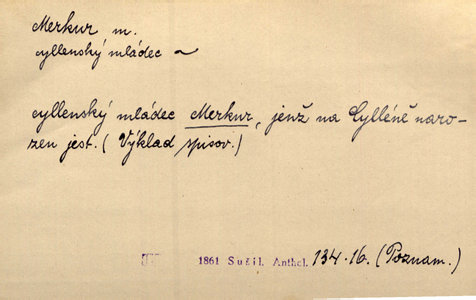 Merkur m.
cyllenský mládec ~
cyllenský mládec Merkur, jenž na Cylléně naro-
zen jest. (Výklad spisov.)
1861 Sušil. Anthol. 134.16. (Poznam.)